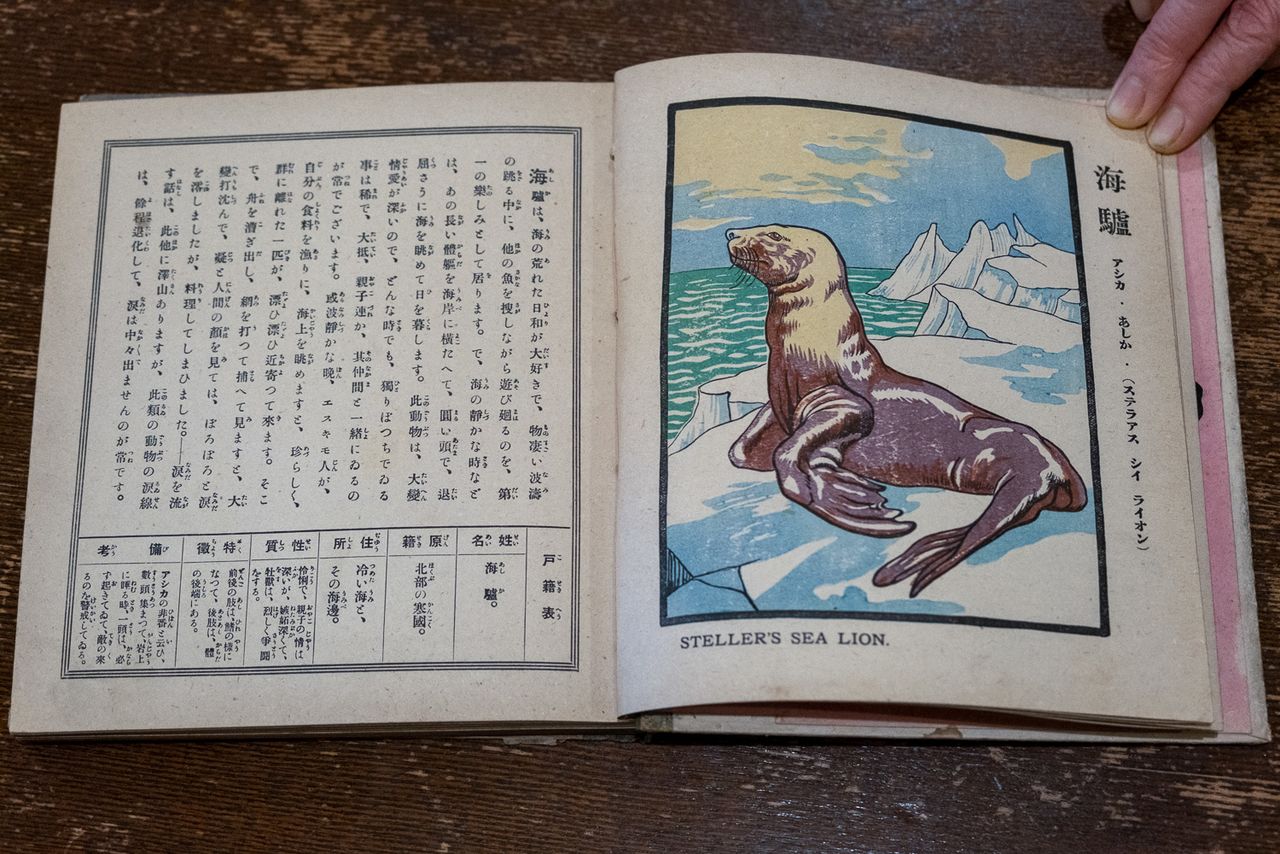 海驢
アシカ・あしか・(ステラアス シイ ライオン)
STELLER'S SEA LION.
海驢は、海の荒れた日和が大好きで、物凄い波濤
の跳る中に、他の魚を捜しながら遊び廻るのを、第
一の樂しみとして居ります。で、海の靜かな時など
は、あの長い體軀を海岸に横たへて、圓い頭で、退
屈さうに海を眺めて日を暮します。此動物は、大變
情愛が深いので、どんな時でも、獨りぼつちでゐる
事は稀で、大抵、親子連か、其仲間と一緒にゐるの
が常でございます。或波靜かな晩、エスキモ人が、
自分の食料を漁りに、海上を眺めますと、珍らしく、
群に離れた一匹が、漂ひ漂ひ近寄つて來ます。そこ
で、舟を漕ぎ出し、網を打つて捕へて見ますと、大
變打沈んで、凝と人間の顔を見ては、ぽろぽろと涙
を澪しましたが、料理してしまひました。──涙を流
す話は、此他に澤山ありますが、此類の動物の涙線
は、餘程退化して、涙は中々出ませんのが常です。
戸籍表
姓名
海驢。
原籍
北部の寒國。
住所
冷い海と、
その海邊。
性質
怜悧で、親子の情は
深いが、嫉妬深くて、
牡獸は、烈しく爭鬪
をする。
特徴
前後の肢は、鰭の樣に
なつて、後肢は、體
の後端にある。
備考
アシカの非番と云ひ、
數頭集まつて、岩上
に睡る時、一頭は、必
ず起きてゐて、敵の來
るのを警戒してゐる。